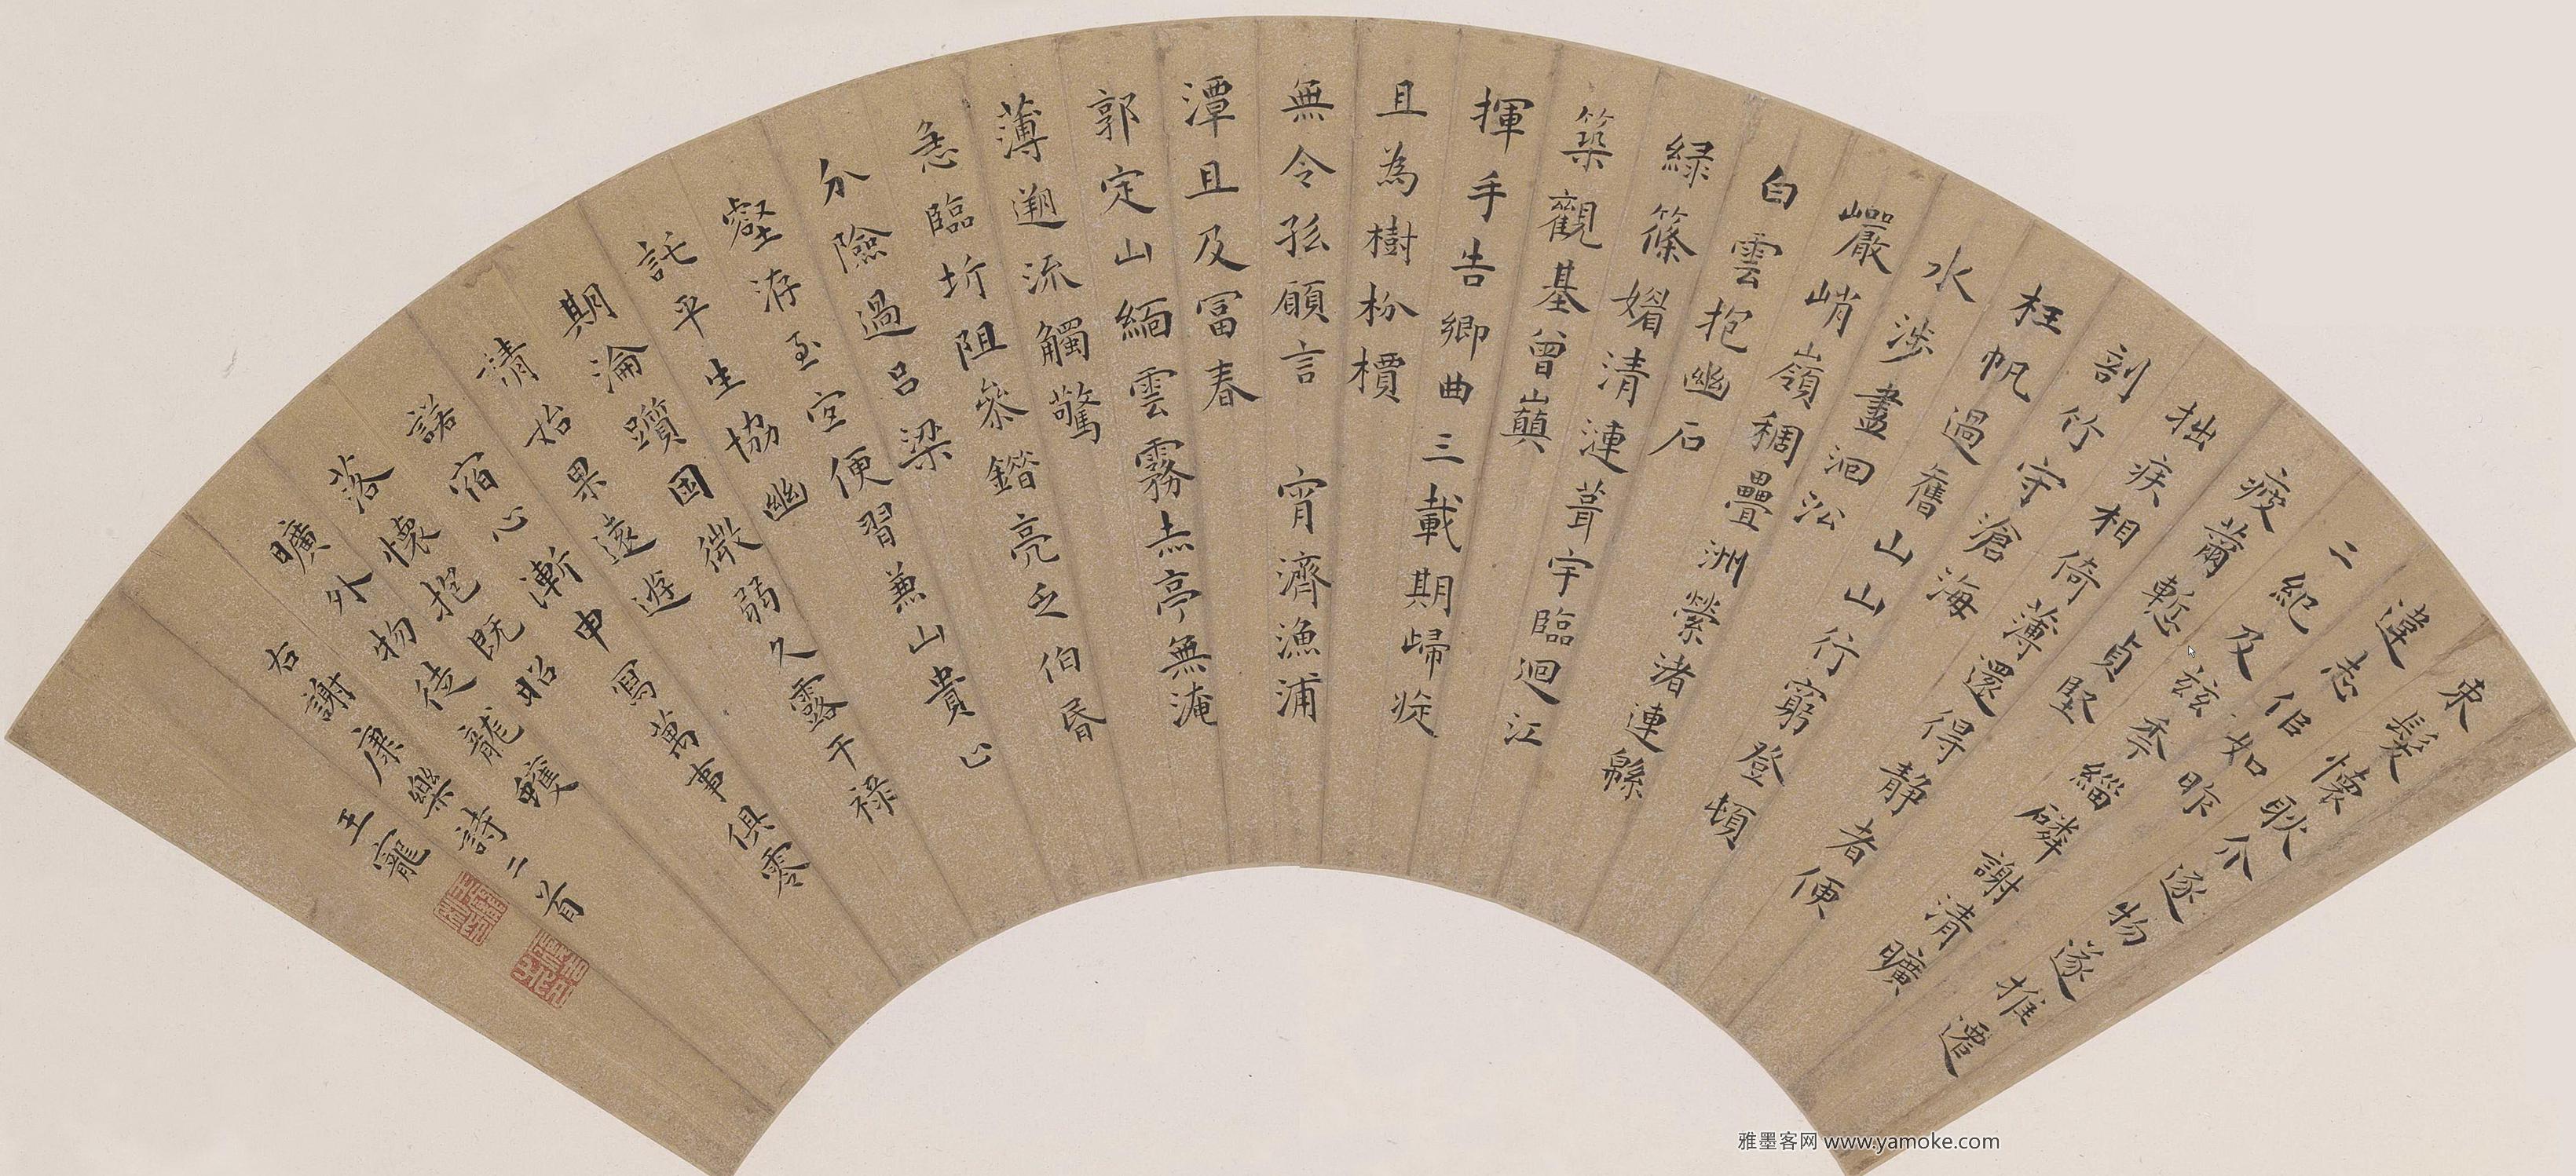 束髮懷耿介逐物遂推遷
違志佀如昨
二紀及茲秊緇磷謝清曠
疲薾慙貞堅
拙疾相倚薄還得靜者便
剖竹守滄海
枉帆過舊山山行窮登頓
水涉盡洄沿
巖峭嶺稠疊洲縈渚連緜
白雲抱幽石
綠篠媚清漣葺宇臨迴江
築觀基曾巔
揮手告鄉曲三載期歸旋
且為樹枌檟
無令孤願言 宵濟漁浦
潭且及富春
郭定山緬雲霧赤亭無淹
薄遡流觸驚
急臨圻阻參錯亮乏伯昏
分險過呂梁
壑洊至宜便習兼山貴止
託平生協幽
期淪躓困微弱久露干祿
請始果遠遊
諾宿心漸申寫萬事俱零
落懷抱既昭
曠外物徒龍蠖
右謝康樂詩二首
王寵
雅墨客网 www.yamoke.com